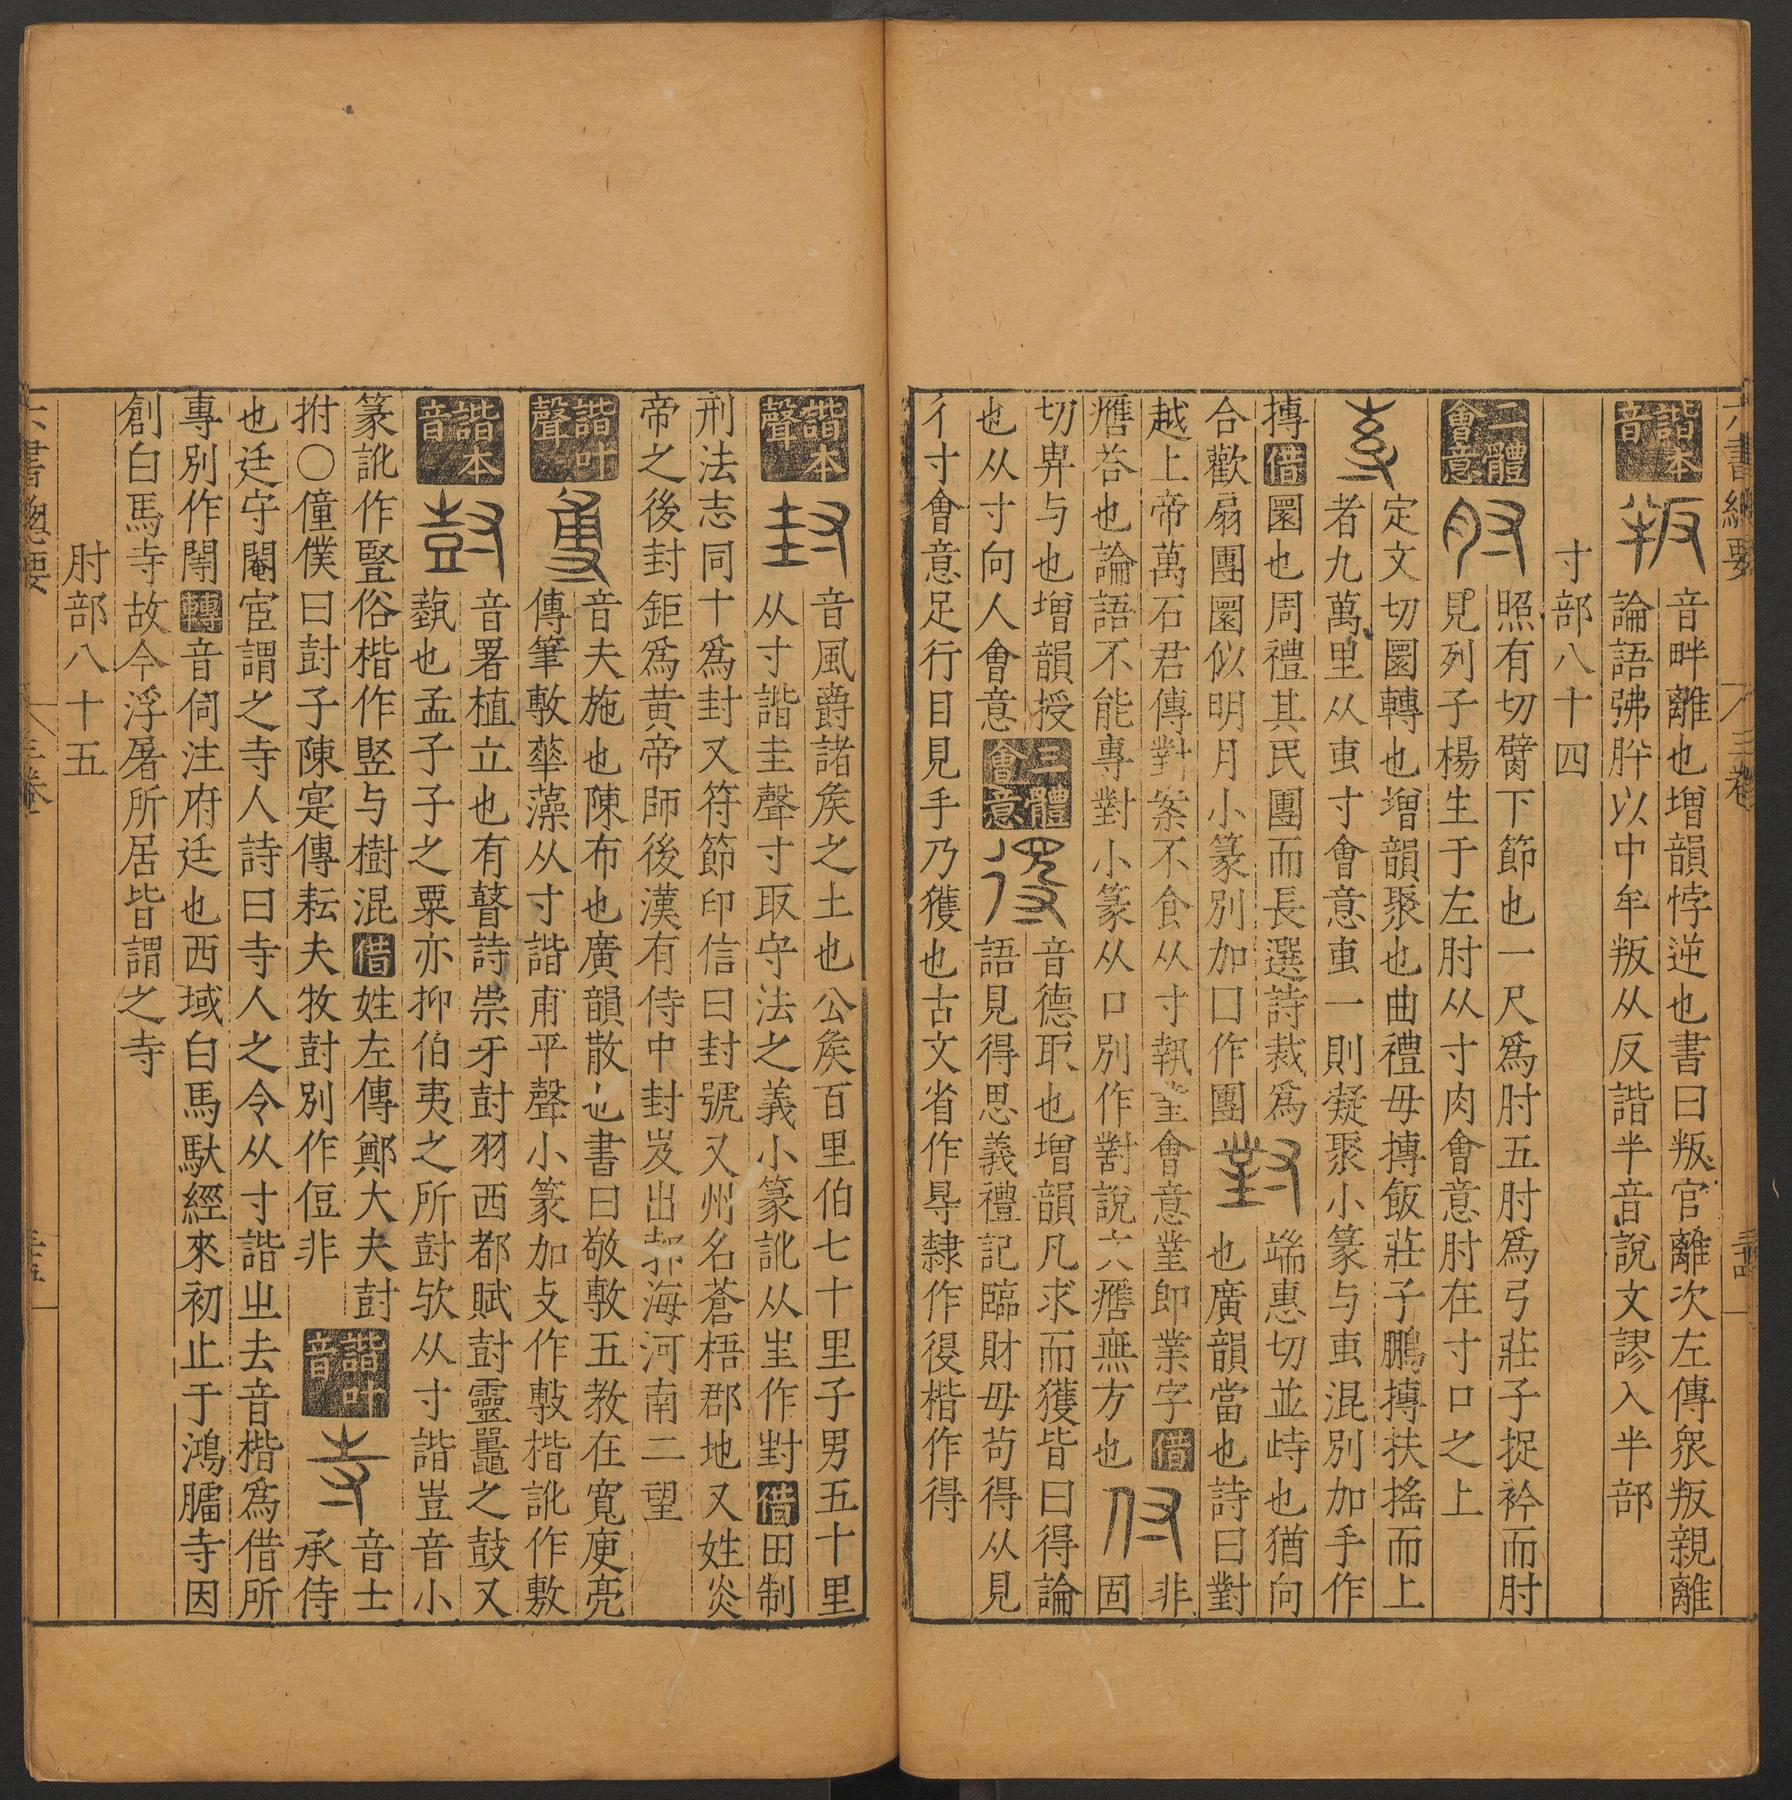 六書總要 三卷
諧本音 叛 音畔離也增韻悖逆也書曰叛官離次左傳衆叛親離
論語弗肸以中牟叛从反諧半音說文謬入半部
寸部八十四
二體會意 肘 照有切臂下節也一尺爲肘五肘爲弓莊子捉衿而肘
見列子楊生于左肘从寸肉會意肘在寸口之上
定文切圜轉也增韻聚也曲禮毋摶飯莊子鵬摶扶搖而上
者九萬里从叀寸會意叀一則凝聚小篆与叀混別加手作
摶 借 圜也周禮其民團而長選詩裁爲
合歡扇團圜似明月小篆別加囗作團 對 端惠切並峙也猶向
也廣韻當也詩曰對
越上帝萬石君傳對案不食从寸執丵會意丵即業字 借 非
譍荅也論語不能專對小篆从口別作對說六譍無方也 付 固
切畀与也增韻授
也从寸向人會意 三體會意 得 音德取也增韻凡求而獲皆曰得論
語見得思義禮記臨財毋苟得从見
彳寸會意足行目見手乃獲也古文省作㝵隸作得楷作得
諧本聲 封 音風爵諸矦之土也公矦百里伯七十里子男五十里
从寸諧圭聲寸取守法之義小篆訛从㞷作封 借 田制
刑法志同十爲封又符節印信曰封號又州名蒼梧郡地又姓炎
帝之後封鉅爲黄帝師後漢有侍中封岌出渤海河南二望
諧叶聲 尃 音夫施也陳布也廣韻散也書曰敬敷五教在寬庾亮
傳筆敷蕐藻从寸諧甫平聲小篆加攴作敷楷訛作敷
諧本音 尌 音署植立也有瞽詩崇牙尌羽西都賦尌靈鼉之鼓又
蓺也孟子子之粟亦抑伯夷之所尌欤从寸諧豈音小
篆訛作豎俗楷作竪与樹混 借 姓左傳鄭大夫尌
拊○僮僕曰尌子陳寔傳耘夫牧尌別作侸非 諧叶音 寺 音士
承侍
也廷守閹宦謂之寺人詩曰寺人之令从寸諧㞢去音楷爲借所
專別作閗 轉 音伺注府廷也西域白馬馱經來初止于鴻臚寺因
創白馬寺故今浮屠所居皆謂之寺
肘部八十五
六書總要 三卷